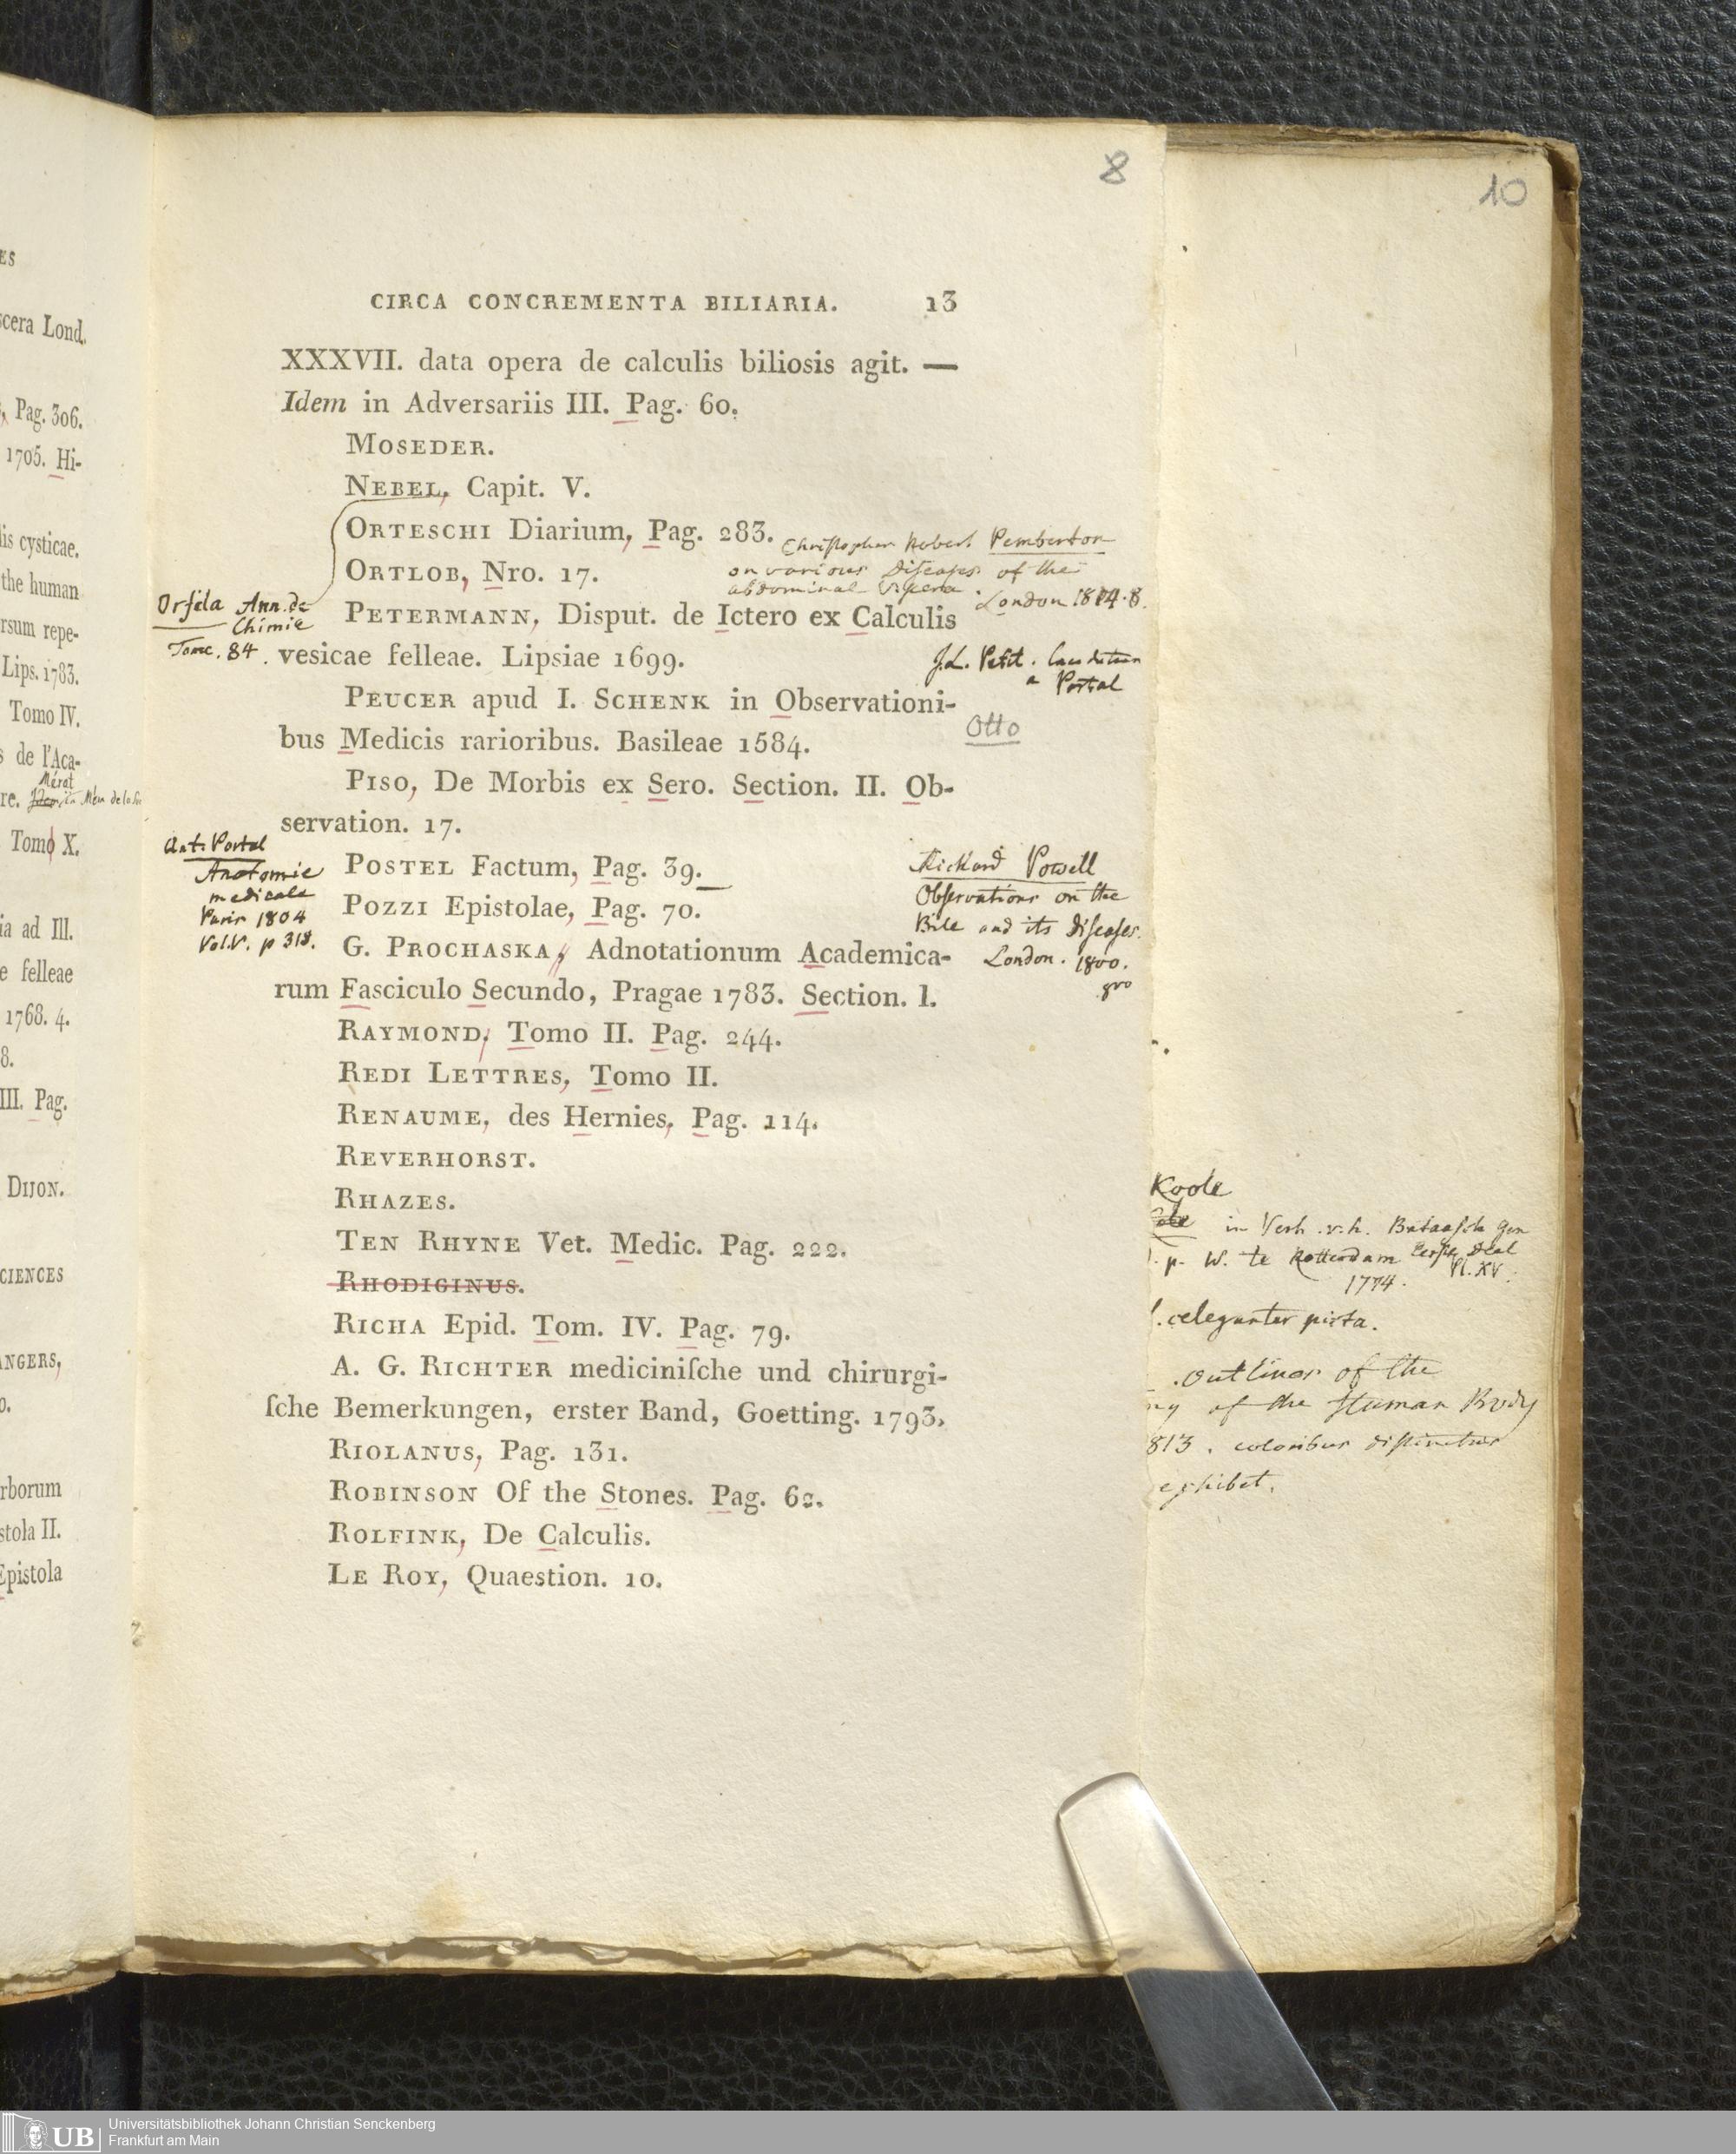 ES
scera Lond.
Pag. 306.
1705. Hi-
lis cysticae.
the human
rsum repe-
Lips. 1783.
Tomo IV.
s de l'Aca-
Mérat
re.
Tomo X.
ia ad Ill.
e felleae
1768. 4.
8.
III. Pag.
DIJON.
CIENCES
ANGERS,
o.
rborum
stola II.
Epistola
8
CIRCA CONCREMENTA BILIARIA. 13
XXXVII. data opera de calculis biliosis agit. —
Idem in Adversariis III. Pag. 60.
MOSEDER.
NEBEL, Capit. V.
ORTESCHI Diarium, Pag. 283.
Christopher Robert Pemberton
on various Diseases of the
abdominal Viscera London 1814. 8.
ORTLOB, Nro. 17.
Orfila Ann. de
Chimie
Tome. 84.
PETERMANN, Disput. de Ictero ex Calculis
vesicae felleae. Lipsiae 1699.
J.L. Petit.
a Portal
PEUCER apud I. SCHENK in Observationi-
Otto
bus Medicis rarioribus. Basileae 1584.
PISO, De Morbis ex Sero. Section. II. Ob-
servation. 17.
Ant. Portal
Anatomie
medicale
Paris 1804
Vol. V. p 318.
POSTEL Factum, Pag. 39.
Richard Powell
Observations on the
Bile and its Diseases.
London. 1800.
8vo
POZZI Epistolae, Pag. 70.
G. PROCHASKA, Adnotationum Academica-
rum Fasciculo Secundo, Pragae 1783. Section. I.
RAYMOND, Tomo II. Pag. 244.
REDI LETTRES, Tomo II.
RENAUME, des Hernies, Pag. 114.
REVERHORST.
RHAZES.
TEN RHYNE Vet. Medic. Pag. 222.
RHODIGINUS.
RICHA Epid. Tom. IV. Pag. 79.
A. G. RICHTER mediciniſche und chirurgi-
ſche Bemerkungen, erster Band, Goetting. 1793.
RIOLANUS, Pag. 131.
ROBINSON Of the Stones. Pag. 62.
ROLFINK, De Calculis.
LE ROY, Quaestion. 10.
10
Koole
in Verh. v. h. Bataafsch Gen
p. W. te Rotterdam Eerste Deel
1774. Pl. XV.
elegunter picta.
outlines of the
ny of the Human Body
813. coloribus distinctius
exhibet.
UB Universitätsbibliothek Johann Christian Senckenberg
Frankfurt am Main